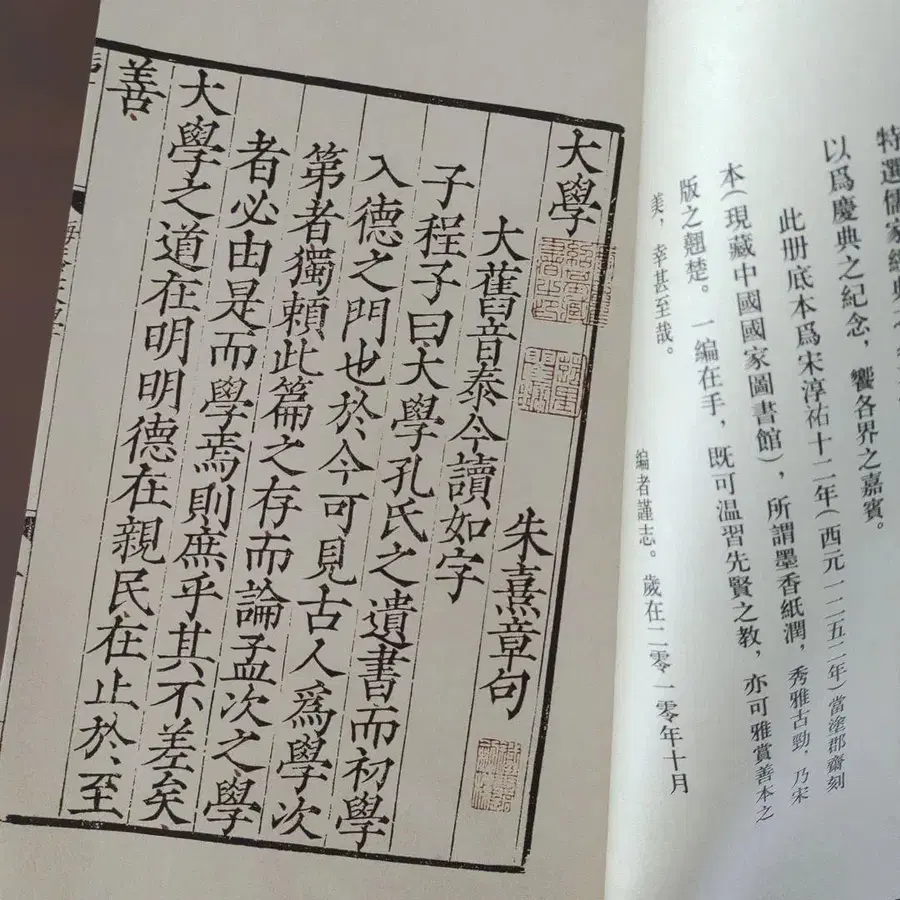 特選儒家經典之
以爲慶典之紀念，饗各界之嘉賓。
此册底本爲宋淳祐十二年（西元一二五二年）當塗郡齋刻
本（現藏中國國家圖書館），所謂墨香紙潤，秀雅古勁，乃宋
版之翹楚。一編在手，既可温習先賢之教，亦可雅賞善本之
美，幸甚至哉。
編者謹志。歲在二零一零年十月
大學 朱熹章句
大舊音泰今讀如字
子程子曰大學孔氏之遺書而初學
入德之門也於今可見古人爲學次
第者獨賴此篇之存而論孟次之學
者必由是而學焉則庶乎其不差矣
大學之道在明明德在親民在止於至
善